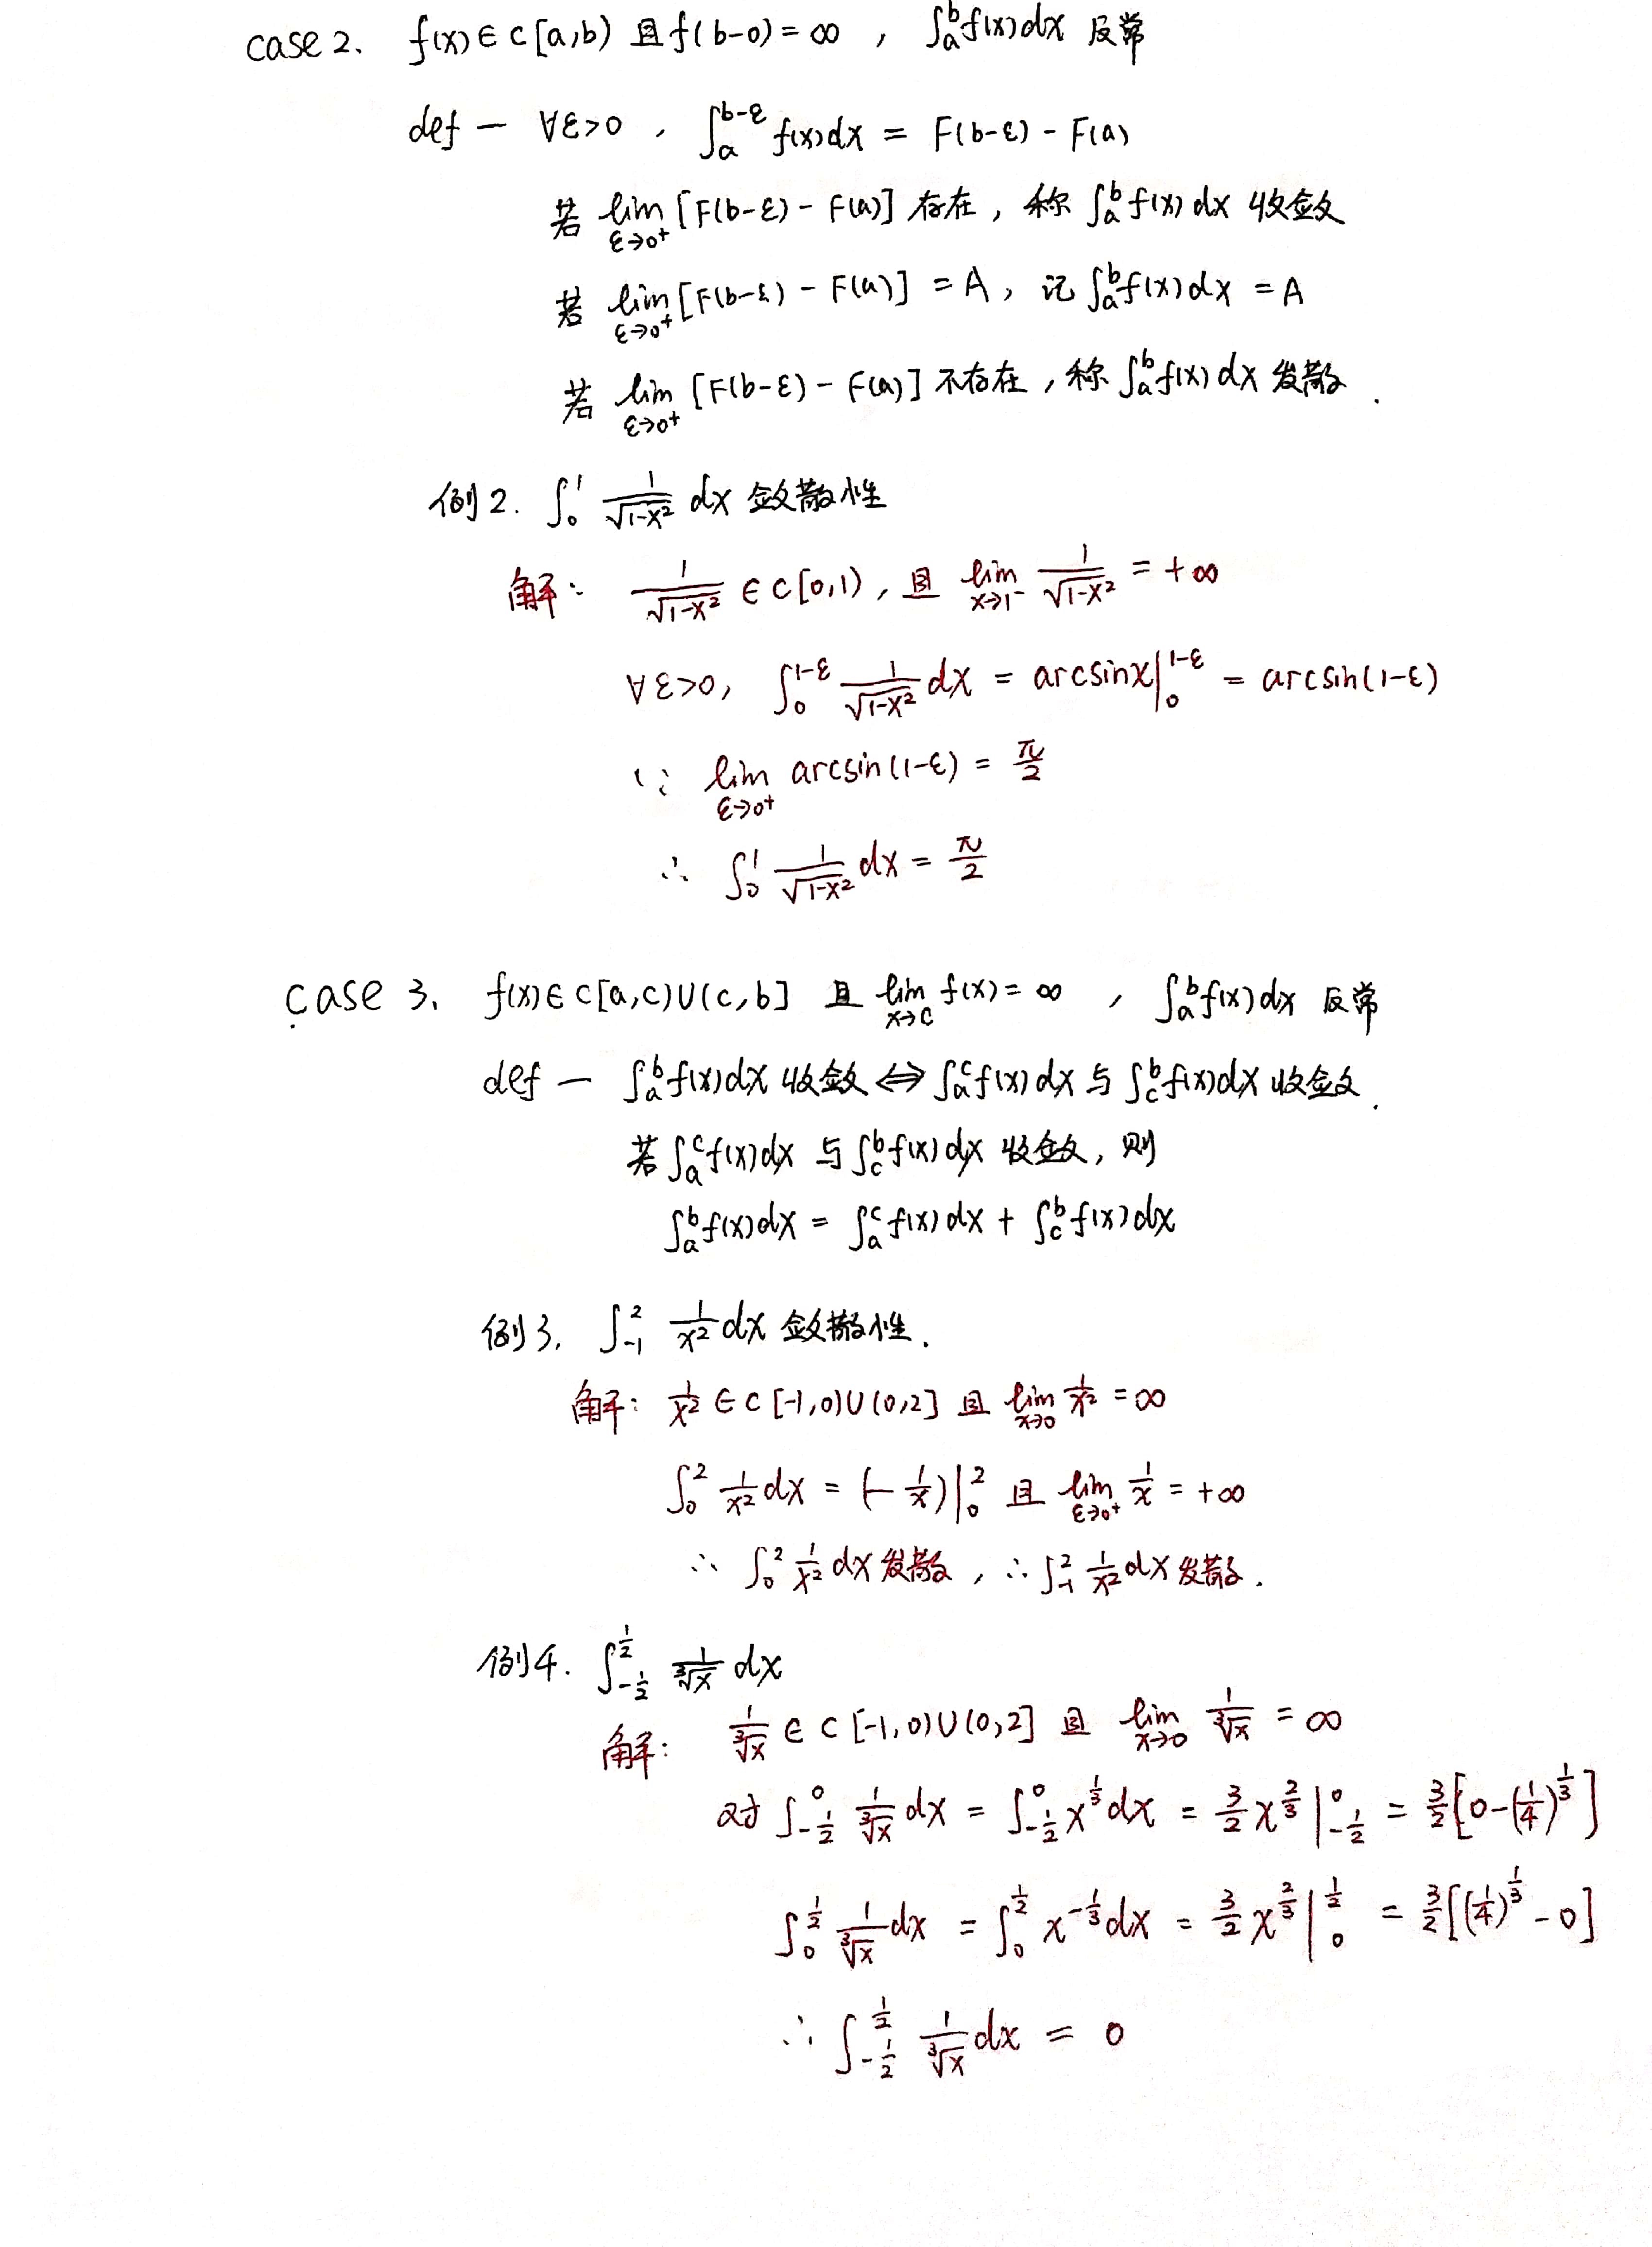 case 2. f(x)∈C[a,b) 且f(b-0)=∞ , ∫_a^b f(x)dx 反常
def — ∀ε>0 , ∫_a^{b-ε} f(x)dx = F(b-ε) - F(a)
若 lim_{ε→0⁺} [F(b-ε) - F(a)] 存在, 称 ∫_a^b f(x) dx 收敛
若 lim_{ε→0⁺} [F(b-ε) - F(a)] = A, 记 ∫_a^b f(x)dx = A
若 lim_{ε→0⁺} [F(b-ε) - F(a)] 不存在, 称 ∫_a^b f(x) dx 发散.
例2. ∫_0^1 1/√(1-x²) dx 敛散性
解: 1/√(1-x²) ∈ C[0,1), 且 lim_{x→1⁻} 1/√(1-x²) = +∞
∀ε>0, ∫_0^{1-ε} 1/√(1-x²) dx = arcsinx|_0^{1-ε} = arcsin(1-ε)
∵ lim_{ε→0⁺} arcsin(1-ε) = π/2
∴ ∫_0^1 1/√(1-x²) dx = π/2
case 3. f(x)∈C[a,c)∪(c,b] 且 lim_{x→c} f(x) = ∞ , ∫_a^b f(x)dx 反常
def — ∫_a^b f(x)dx 收敛 ⇔ ∫_a^c f(x)dx 与 ∫_c^b f(x)dx 收敛.
若 ∫_a^c f(x)dx 与 ∫_c^b f(x)dx 收敛, 则
∫_a^b f(x)dx = ∫_a^c f(x)dx + ∫_c^b f(x)dx
例3. ∫_{-1}^2 1/x² dx 敛散性.
解: 1/x² ∈ C[-1,0)∪(0,2] 且 lim_{x→0} 1/x² = ∞
∫_0^2 1/x² dx = (-1/x)|_0^2 且 lim_{ε→0⁺} 1/x = +∞
∴ ∫_0^2 1/x² dx 发散, ∴ ∫_{-1}^2 1/x² dx 发散.
例4. ∫_{-1/2}^{1/2} 1/∛x dx
解: 1/∛x ∈ C[-1,0)∪(0,2] 且 lim_{x→0} 1/∛x = ∞
对 ∫_{-1/2}^0 1/∛x dx = ∫_{-1/2}^0 x^{1/3} dx = 3/2 x^{2/3}|_{-1/2}^0 = 3/2[0-(1/4)^{1/3}]
∫_0^{1/2} 1/∛x dx = ∫_0^{1/2} x^{-1/3} dx = 3/2 x^{2/3}|_0^{1/2} = 3/2[(1/4)^{1/3} - 0]
∴ ∫_{-1/2}^{1/2} 1/∛x dx = 0